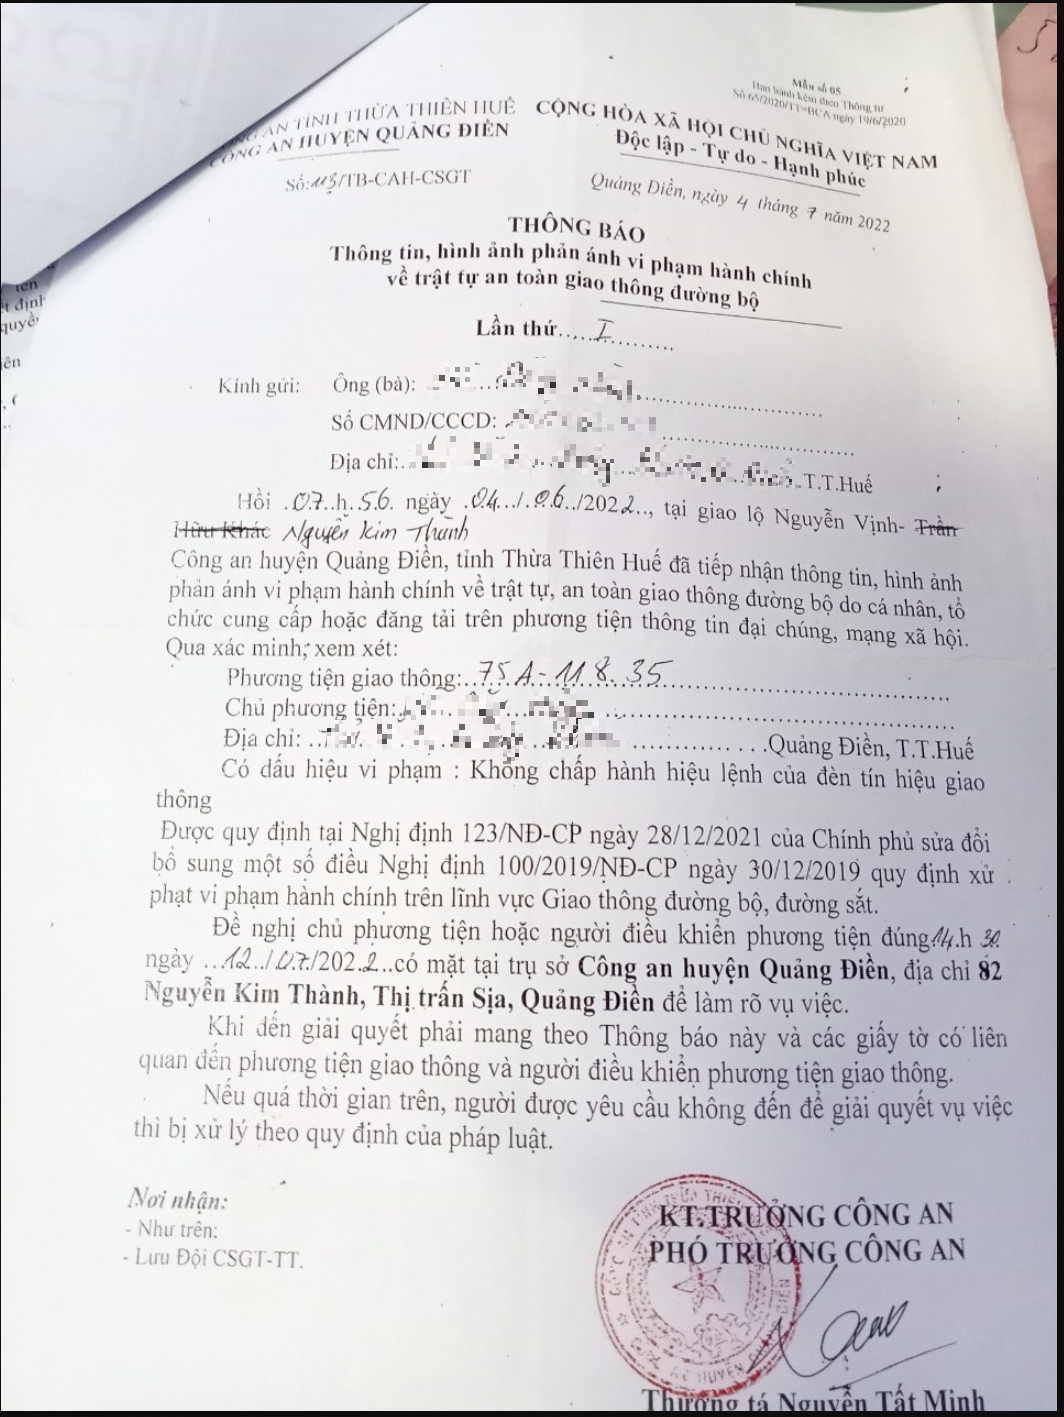 Mẫu số 05
Ban hành kèm theo Thông tư
Số 65/2020/TT-BCA ngày 19/6/2020
AN TỈNH THỪA THIÊN HUẾ CỘNG HÒA XÃ HỘI CHỦ NGHĨA VIỆT NAM
CÔNG AN HUYỆN QUẢNG ĐIỀN Độc lập - Tự do - Hạnh phúc
Số:113/TB-CAH-CSGT Quảng Điền, ngày 4 tháng 7 năm 2022
THÔNG BÁO
Thông tin, hình ảnh phản ánh vi phạm hành chính
về trật tự an toàn giao thông đường bộ
Lần thứ.....I...........
Kính gửi: Ông (bà):
Số CMND/CCCD:
Địa chỉ: T.T.Huế
Hồi .07..h..56. ngày .04../.06../2022.., tại giao lộ Nguyễn Vịnh- Trần
Hữu Khác Nguyễn Kim Thành
Công an huyện Quảng Điền, tỉnh Thừa Thiên Huế đã tiếp nhận thông tin, hình ảnh
phản ánh vi phạm hành chính về trật tự, an toàn giao thông đường bộ do cá nhân, tổ
chức cung cấp hoặc đăng tải trên phương tiện thông tin đại chúng, mạng xã hội.
Qua xác minh; xem xét:
Phương tiện giao thông:..75A-118.35
Chủ phương tiện:
Địa chỉ: Quảng Điền, T.T.Huế
Có dấu hiệu vi phạm : Không chấp hành hiệu lệnh của đèn tín hiệu giao
thông
Được quy định tại Nghị định 123/NĐ-CP ngày 28/12/2021 của Chính phủ sửa đổi
bổ sung một số điều Nghị định 100/2019/NĐ-CP ngày 30/12/2019 quy định xử
phạt vi phạm hành chính trên lĩnh vực Giao thông đường bộ, đường sắt.
Đề nghị chủ phương tiện hoặc người điều khiển phương tiện đúng 14.h 30
ngày ...12../.07./2022..có mặt tại trụ sở Công an huyện Quảng Điền, địa chỉ 82
Nguyễn Kim Thành, Thị trấn Sịa, Quảng Điền để làm rõ vụ việc.
Khi đến giải quyết phải mang theo Thông báo này và các giấy tờ có liên
quan đến phương tiện giao thông và người điều khiển phương tiện giao thông.
Nếu quá thời gian trên, người được yêu cầu không đến để giải quyết vụ việc
thì bị xử lý theo quy định của pháp luật.
Nơi nhận:
- Như trên;
- Lưu Đội CSGT-TT.
KT.TRƯỞNG CÔNG AN
PHÓ TRƯỞNG CÔNG AN
Thượng tá Nguyễn Tất Minh